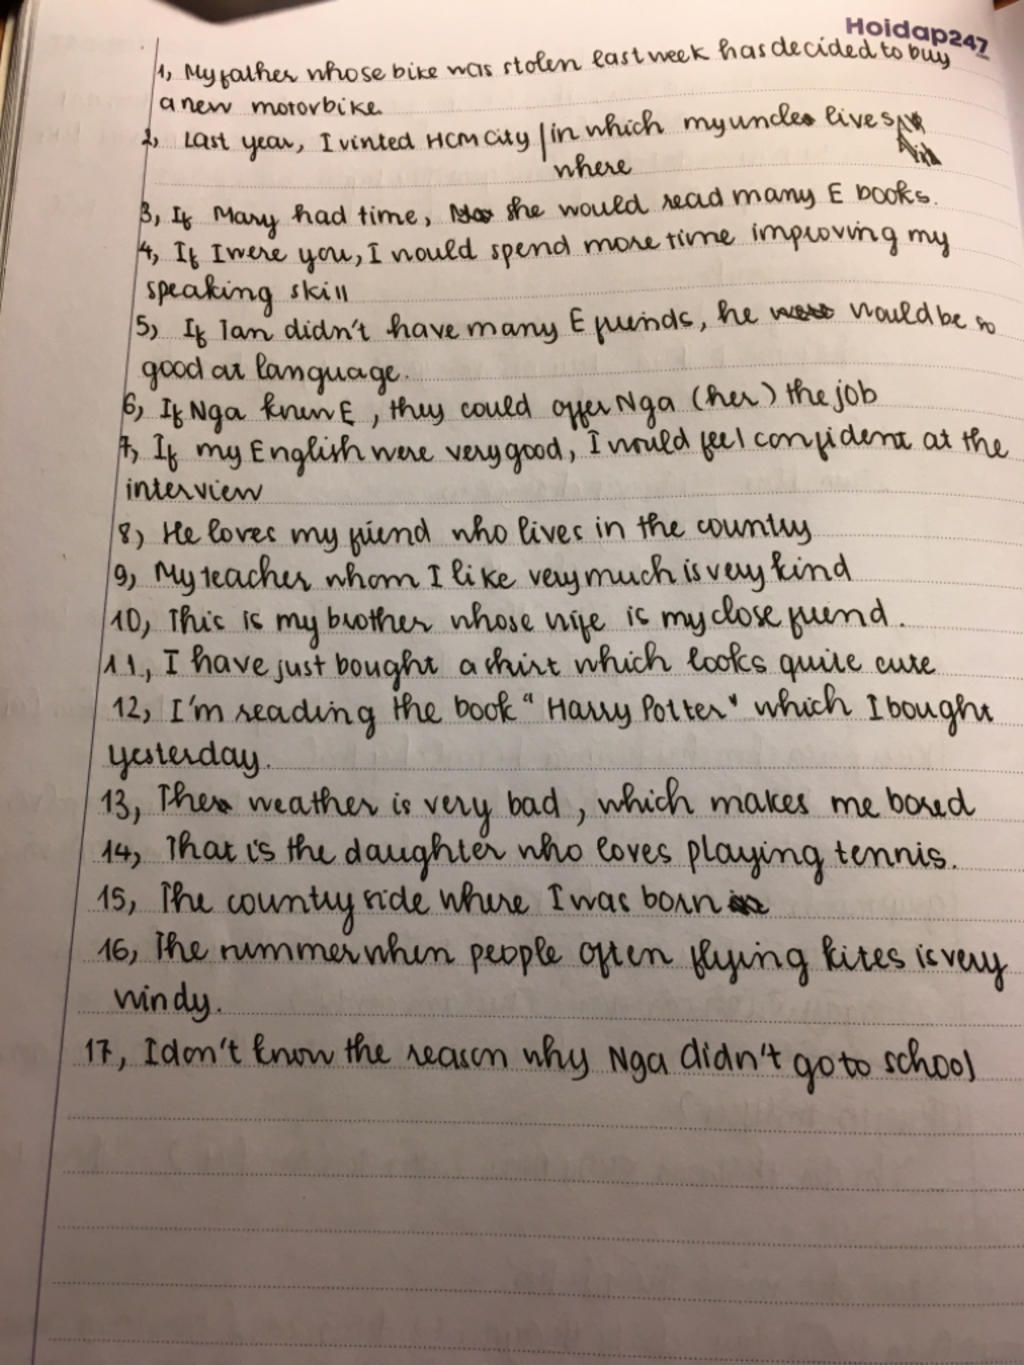 Hoidap247
1, My father whose bike was stolen last week has decided to buy
a new motorbike
2, Last year, I visited HCM City / in which my uncle lives
where
3, If Mary had time, she would read many E books.
4, If I were you, I would spend more time improving my
speaking skill
5) If Ian didn't have many E friends, he would be so
good at language.
6) If Nga knew E, they could offer Nga (her) the job
7, If my English were very good, I would feel confident at the
interview
8) He loves my friend who lives in the country
9) My teacher whom I like very much is very kind
10) This is my brother whose wife is my close friend.
11, I have just bought a shirt which looks quite cute
12, I'm reading the book "Harry Potter" which I bought
yesterday.
13, The weather is very bad, which makes me bored
14, That is the daughter who loves playing tennis.
15, The country side where I was born
16, The summer when people often flying kites is very
windy.
17, I don't know the reason why Nga didn't go to school